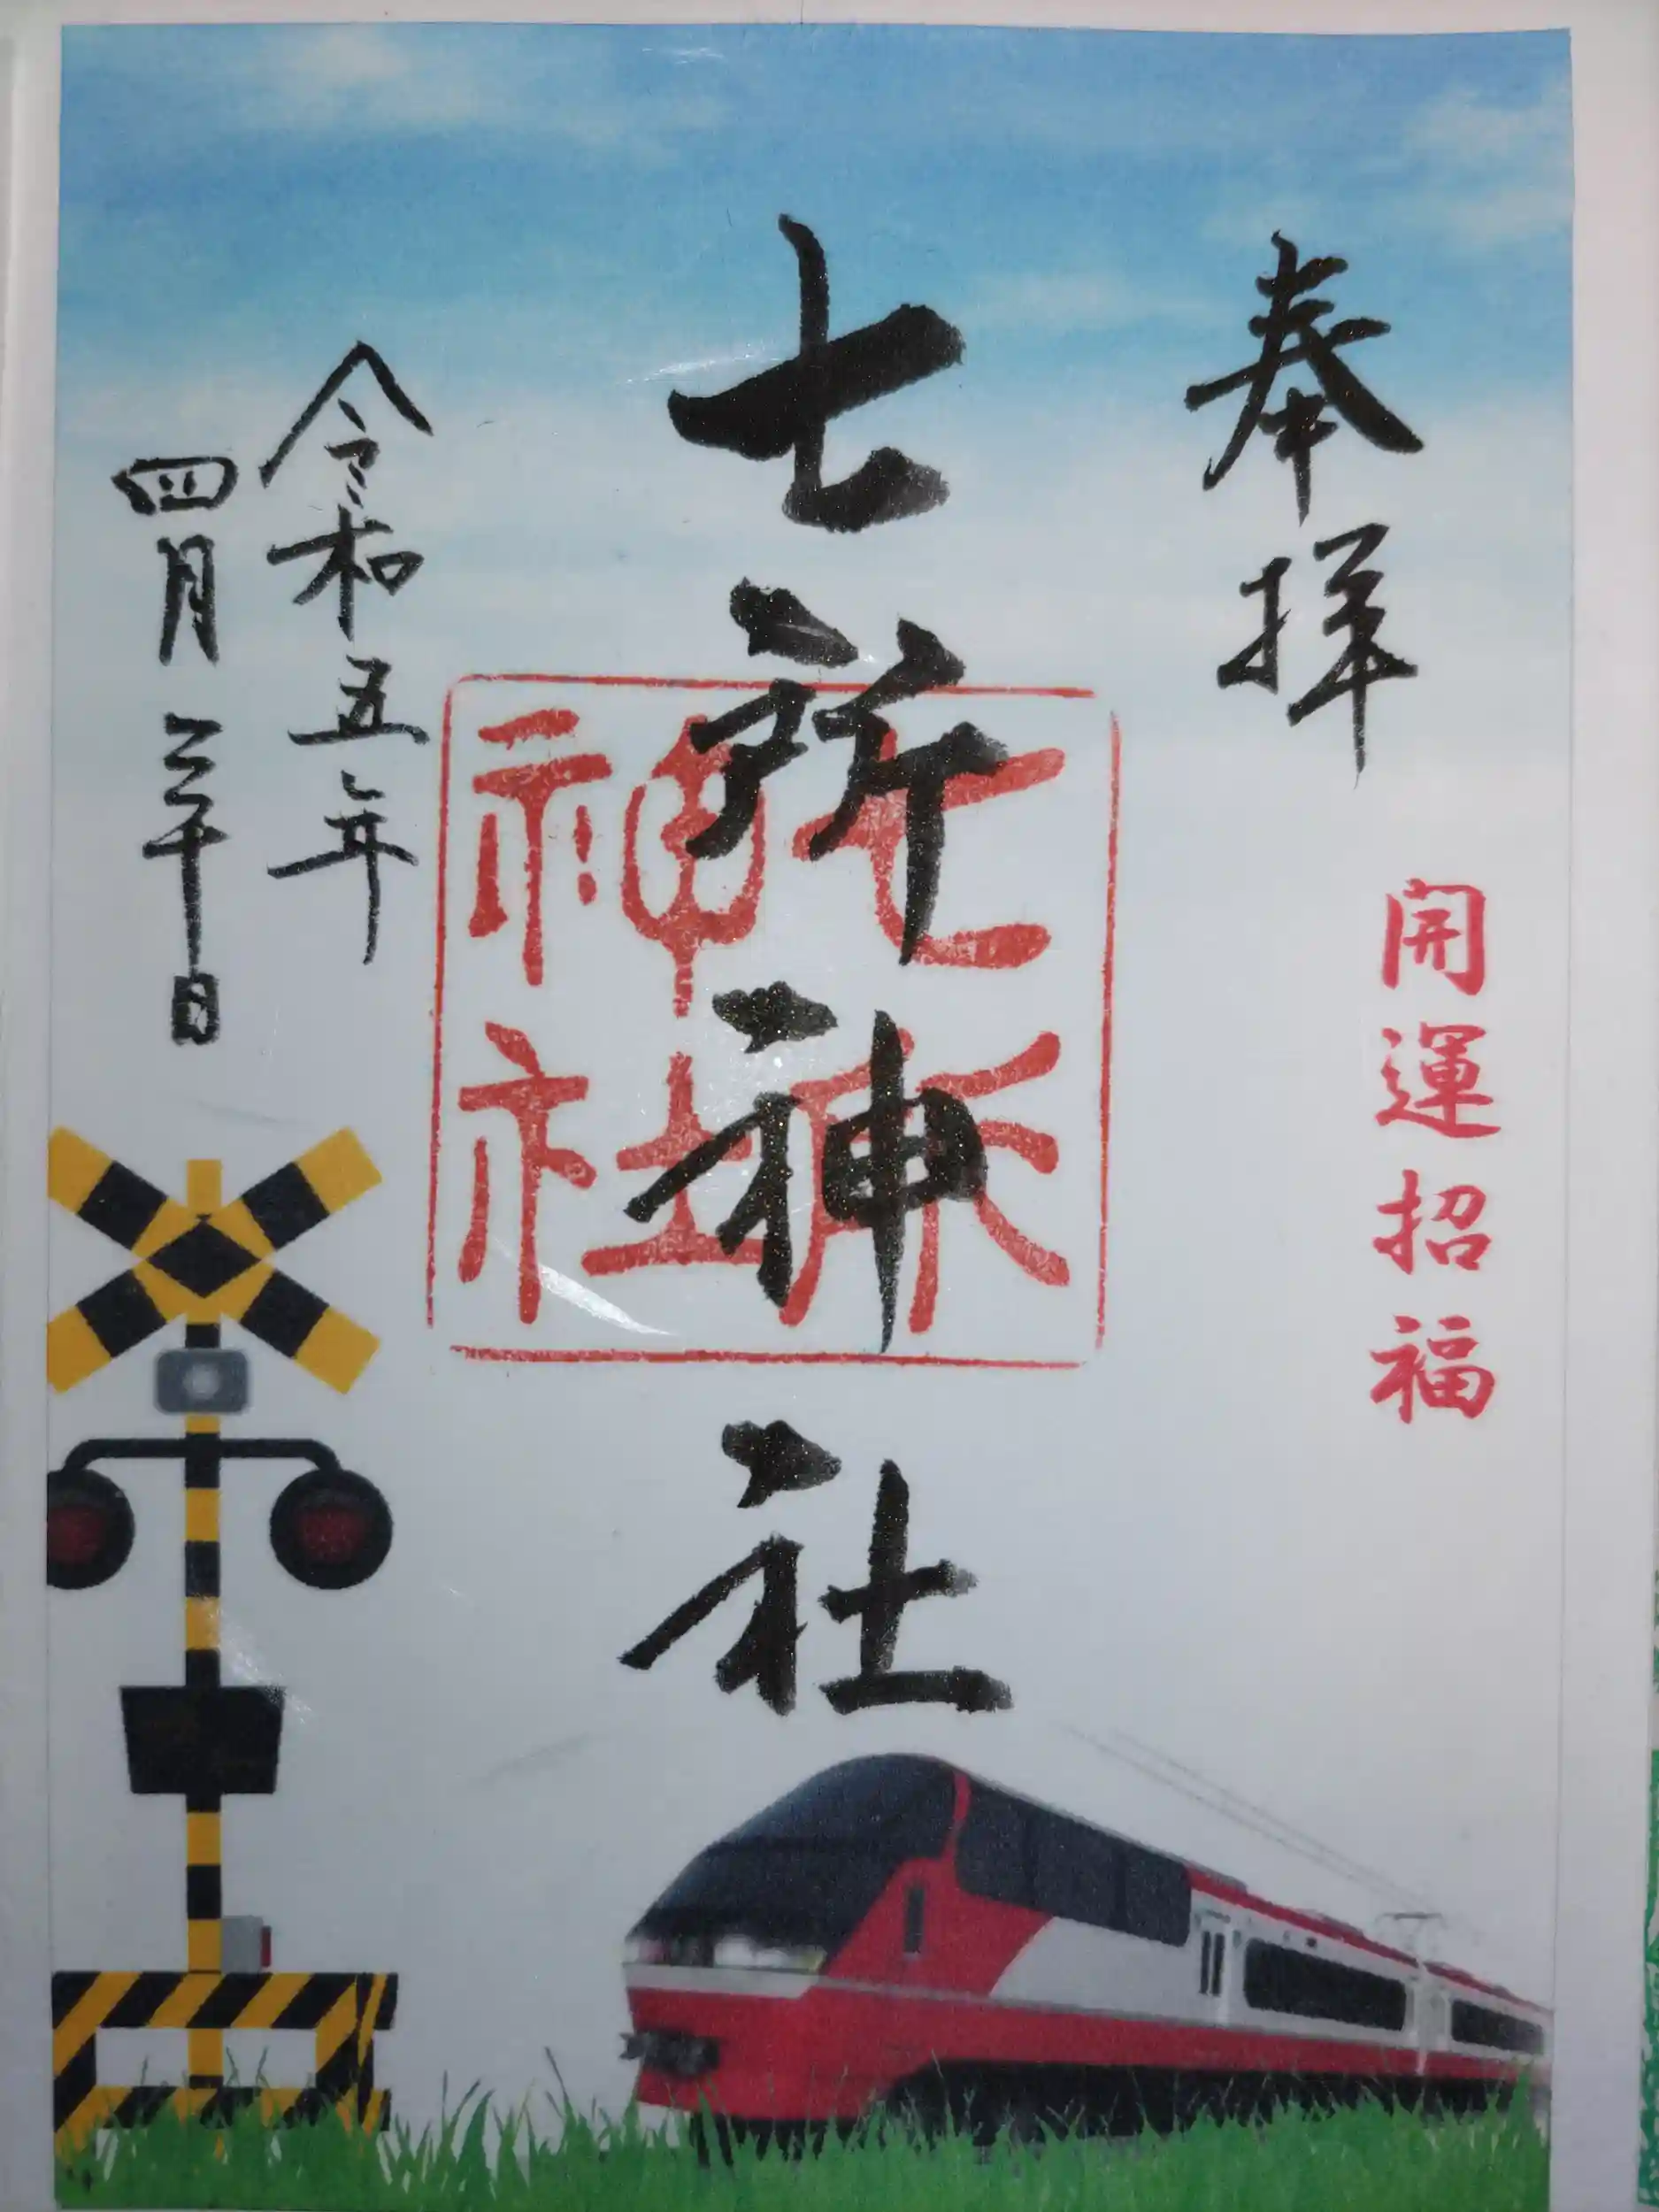 奉拝
開運招福
七所神社
七所神社
令和五年
四月三十日